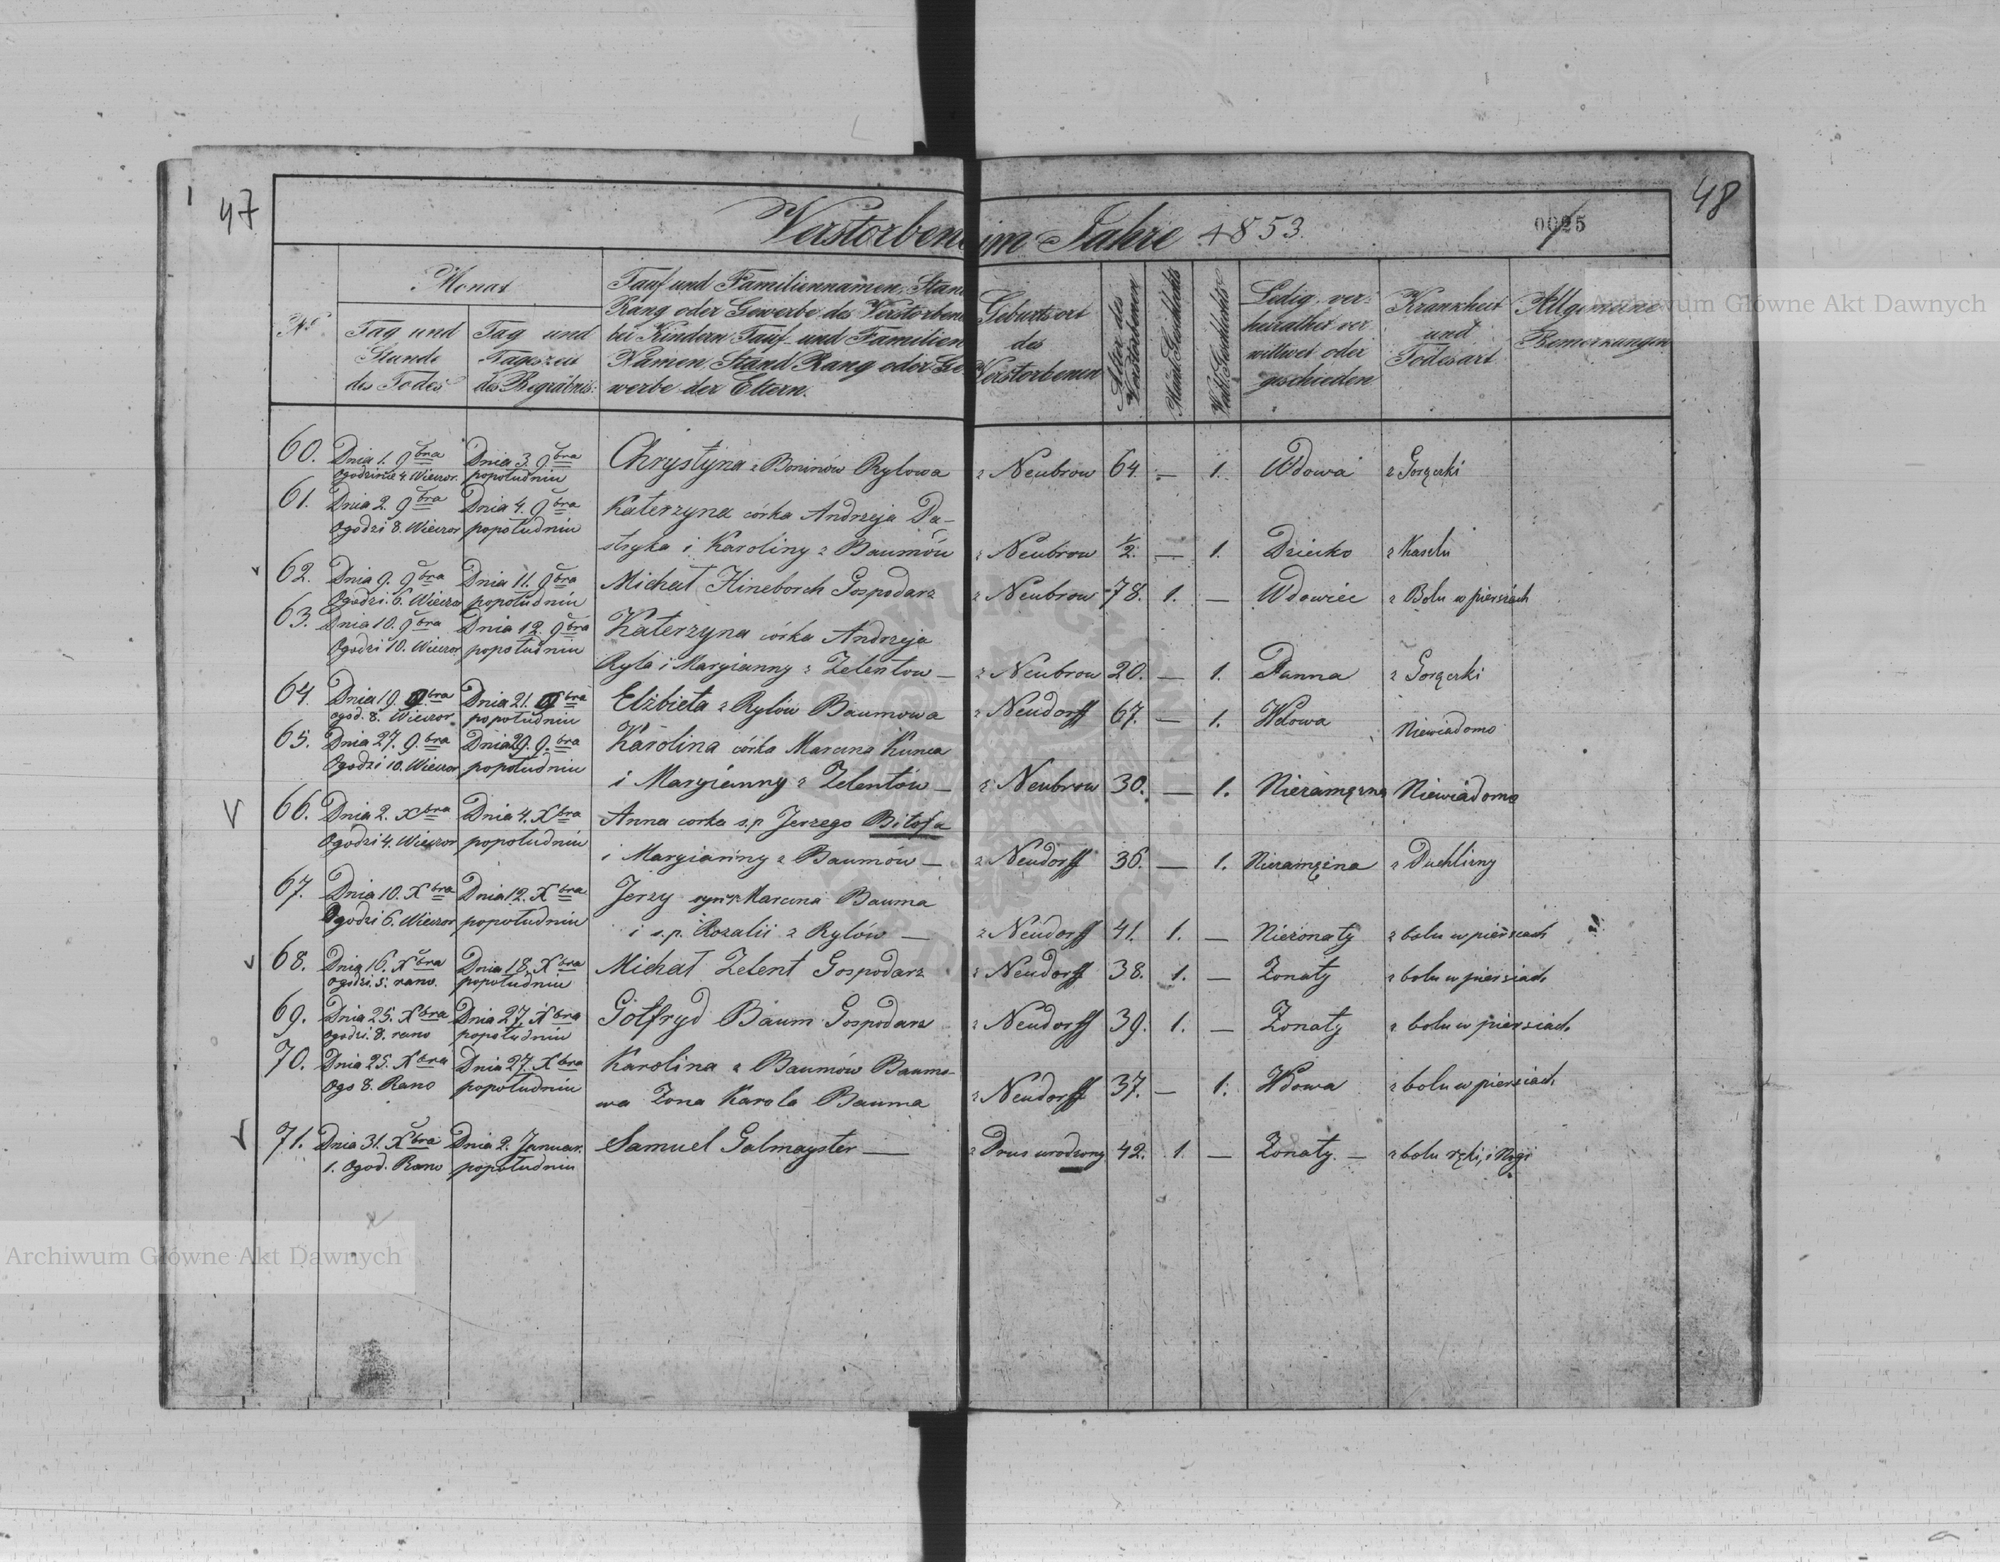 47
48
Verstorbene im Jahre 1853.
0025
Archiwum Główne Akt Dawnych
No
Monat
Tag und Stunde des Todes
Tag und Tageszeit des Begräbnis:
Tauf und Familiennamen, Stand
Rang oder Gewerbe des Verstorbene
bei Kindern Tauf und Familien
Namen Stand Rang oder Ge
werbe der Eltern.
Geburtsort
des
Verstorbenen
Alter des Verstorbenen
Ledig, ver:
heirathet ver
wittwet oder
geschieden
Krankheit
und
Todesart
Allgemeine
Bemerkungen
60. Dnia 1. 9bra Dnia 3. 9bra Chrystyna z Boninów Rylowa z Neubrow 64. — 1. Wdowa z Gorączki
Ogodzinie 4. Wieczor. popołudniu
61. Dnia 2. 9bra Dnia 4. 9bra Katerzyna córka Andrzeja Pa-
Ogodzi 8. Wieczor popołudniu stryka i Karoliny z Baumów z Neubrow 1/2. — 1. Dziecko z Kaszlu
62. Dnia 9. 9bra Dnia 11. 9bra Michał Hineborch Gospodarz z Neubrow 78. 1. — Wdowiec z Bolu w piersiach
Ogodzi. 6. Wieczor popołudniu
63. Dnia 10. 9bra Dnia 12. 9bra Katerzyna córka Andrzeja
Ogodzi 10. Wieczor popołudniu Ryla i Maryianny z Zelentow — z Neubrow 20. — 1. Panna z Gorączki
64. Dnia 19. 9bra Dnia 21. 9bra Elżbieta z Rylów Baumowa z Neudorff 67. — 1. Wdowa Niewiadomo
ogod. 8. Wieczor popołudniu
65. Dnia 27. 9.bra Dnia 29. 9.bra Karolina córka Marcina Kunca
Ogodzi 10. Wieczor popołudniu i Maryianny z Zelentów — z Neubrow 30. — 1. Niezamężna Niewiadomo
66. Dnia 2. Xbra Dnia 4. Xbra Anna corka s.p Jerzego Bitofa
Ogodzi 4. Wieczor popołudniu i Maryianny z Baumów — z Neudorff 36. — 1. Niezamężna z Puchliny
67. Dnia 10. Xbra Dnia 12. Xbra Jerzy syn Marcina Bauma
Ogodzi 6. Wieczor popołudniu i s.p. Rozalii z Rylów — z Neudorff 41. 1. — Nieżonaty z bolu w piersiach
68. Dnia 16. Xbra Dnia 18. Xbra Michał Zelent Gospodarz z Neudorff 38. 1. — Zonaty z bolu w piersiach
ogodzi. 5. rano. popołudniu
69. Dnia 25. Xbra Dnia 27. Xbra Gotfryd Baum Gospodarz z Neudorff 39. 1. — Zonaty z bolu w piersiach
ogodzi. 8. rano popołudniu
70. Dnia 25. Xbra Dnia 27. Xbra Karolina z Baumów Baumo-
Ogo 8. Rano popołudniu wa Zona Karola Bauma z Neudorff 37. — 1. Wdowa z bolu w piersiach
71. Dnia 31. Xbra Dnia 2. Januar. Samuel Galmayster — z Prus urodzony 42. 1. — Zonaty. — z bolu ręki, i Nogi
1. Ogod. Rano popołudniu
Archiwum Główne Akt Dawnych